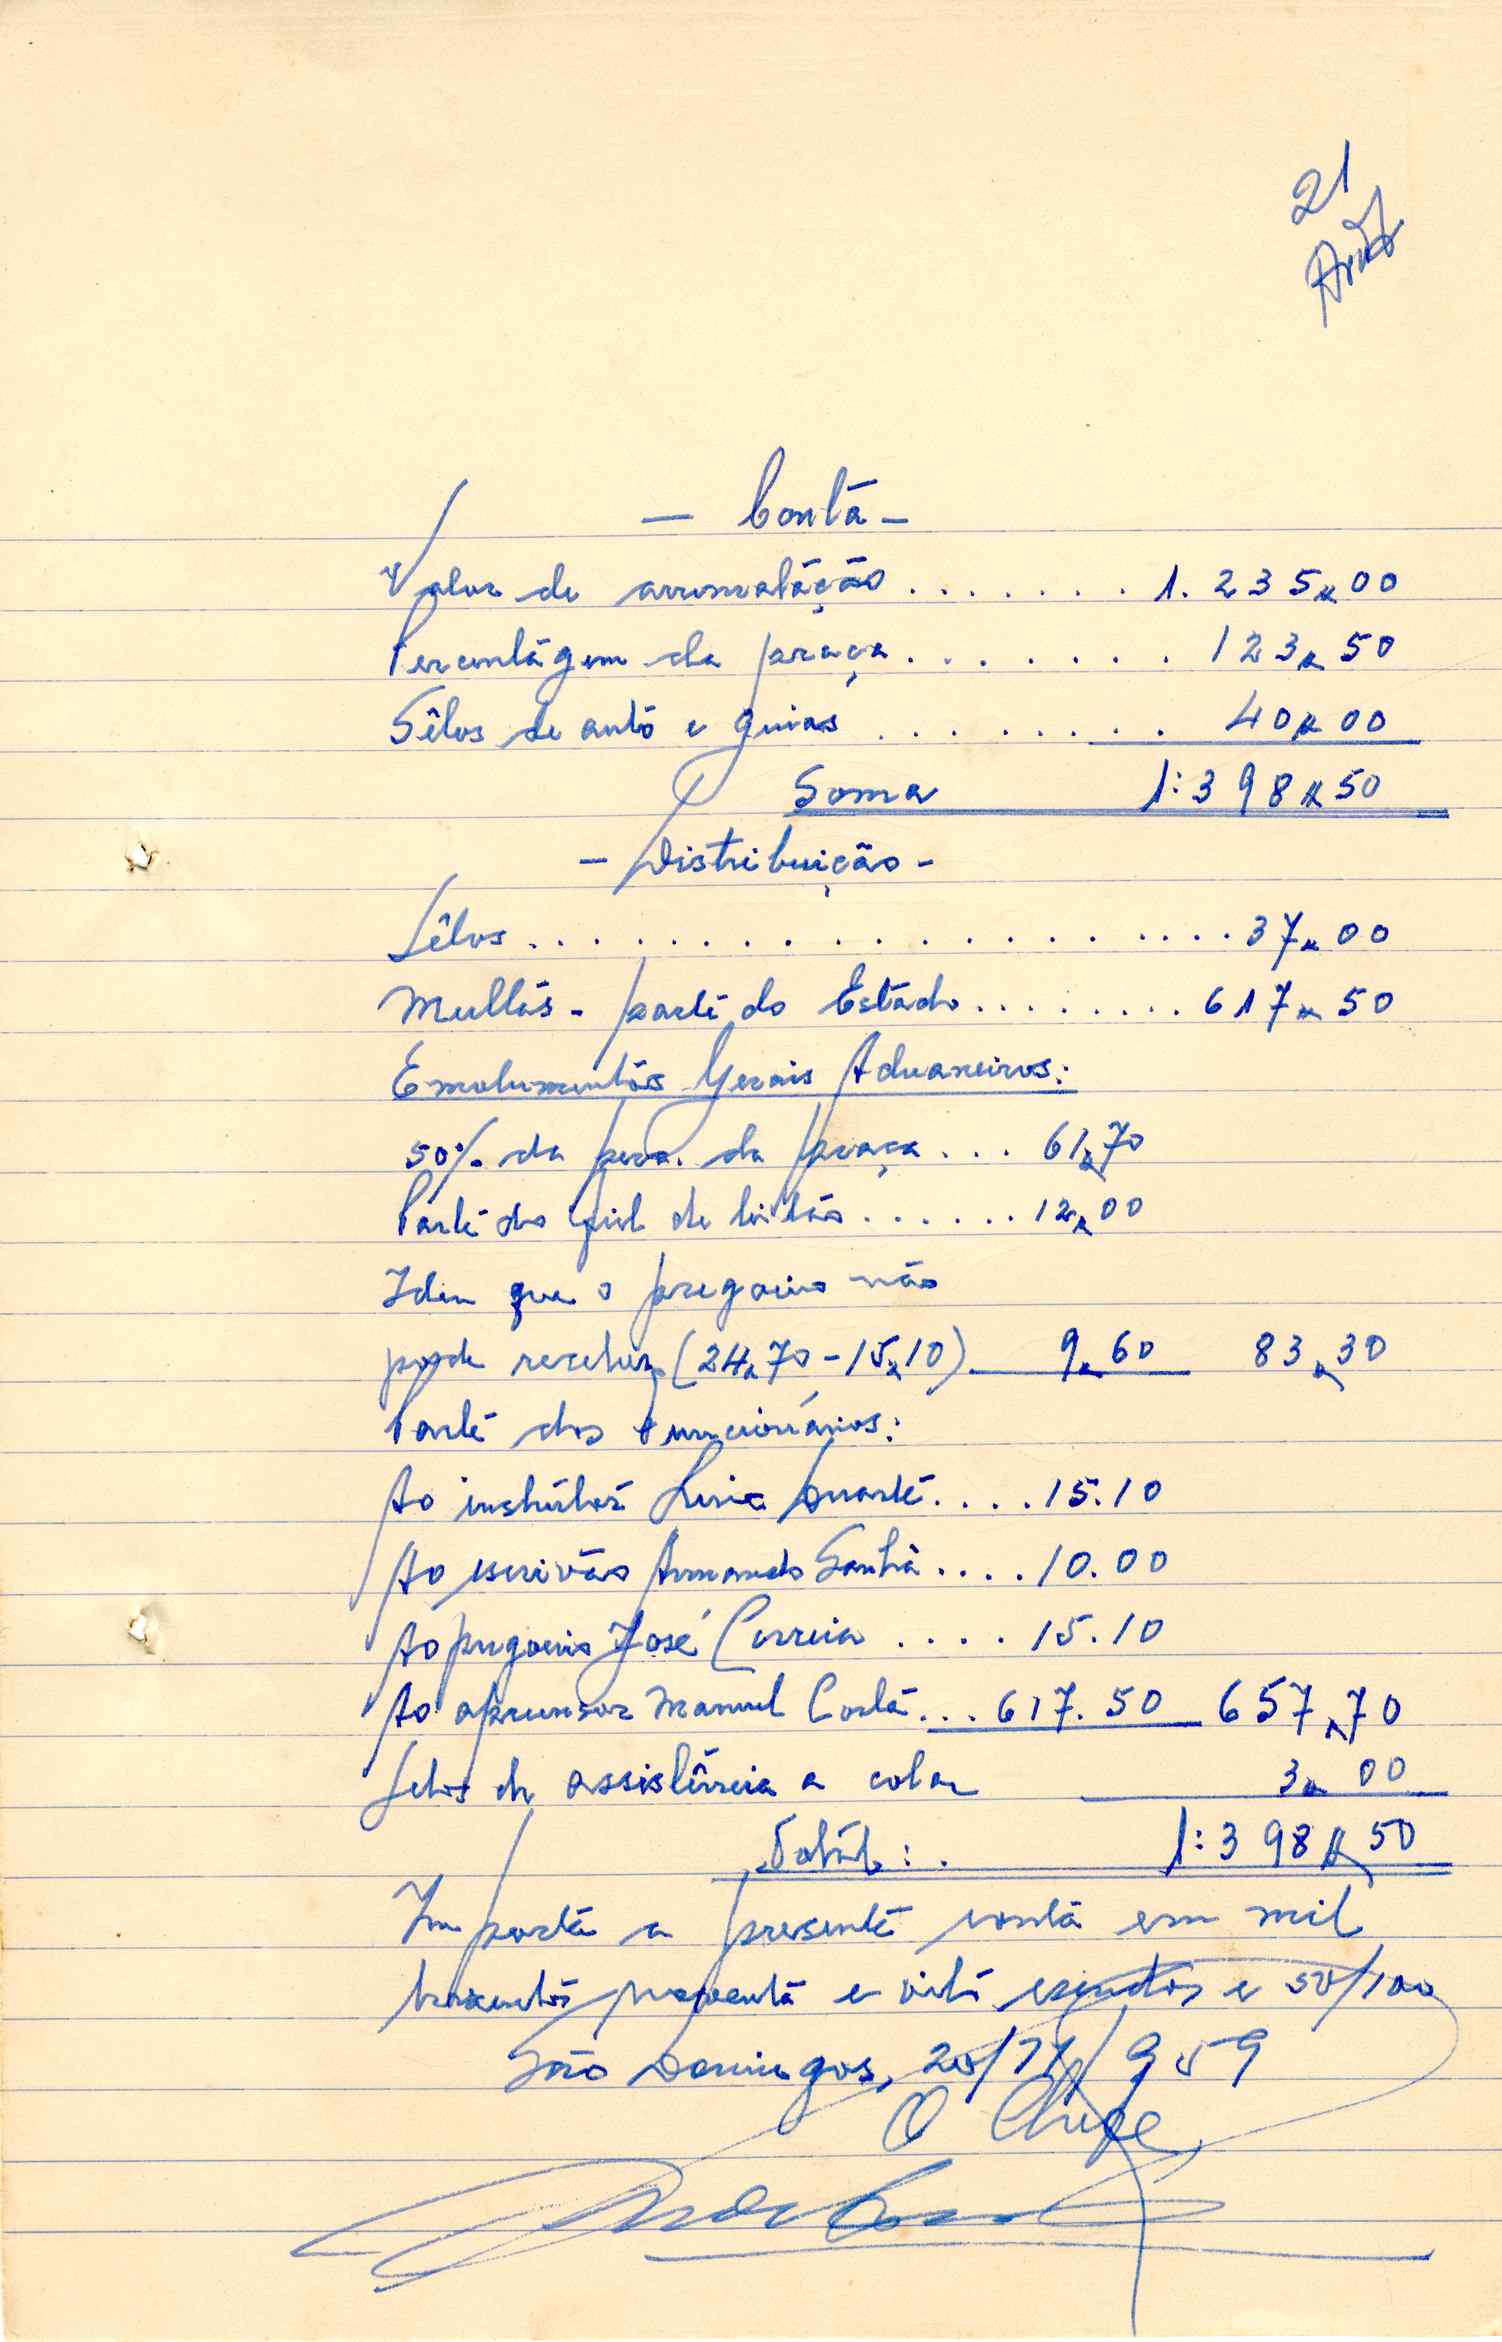 21
— Conta —
Valor de arrematação ....... 1.235$00
Percentágem da praça ....... 123$50
Sêlos de auto e guias ......... 40$00
Soma 1:398$50
— Distribuição —
Sêlos .................... 37$00
Multas - parte do Estado ......... 617$50
Emolumentos Gerais Aduaneiros:
50% da perc. da praça ... 61$70
Parte do fiel de leilão ...... 12$00
Idem que o pregoeiro não
pode receber (24$70 - 15$10) 9$60 83$30
Parte dos Funcionários:
Ao instrutor Duarte .... 15.10
Ao escrivão Armando Sanhá .... 10.00
Ao pregoeiro José Correia .... 15.10
Ao apreensor Manuel Costa ... 617.50 657$70
Selos de assistência a colar 3$00
Total: . 1:398$50
Importa a presente conta em mil
trezentos noventa e oito escudos e 50/100
São Domingos, 20/11/959
O Chefe,